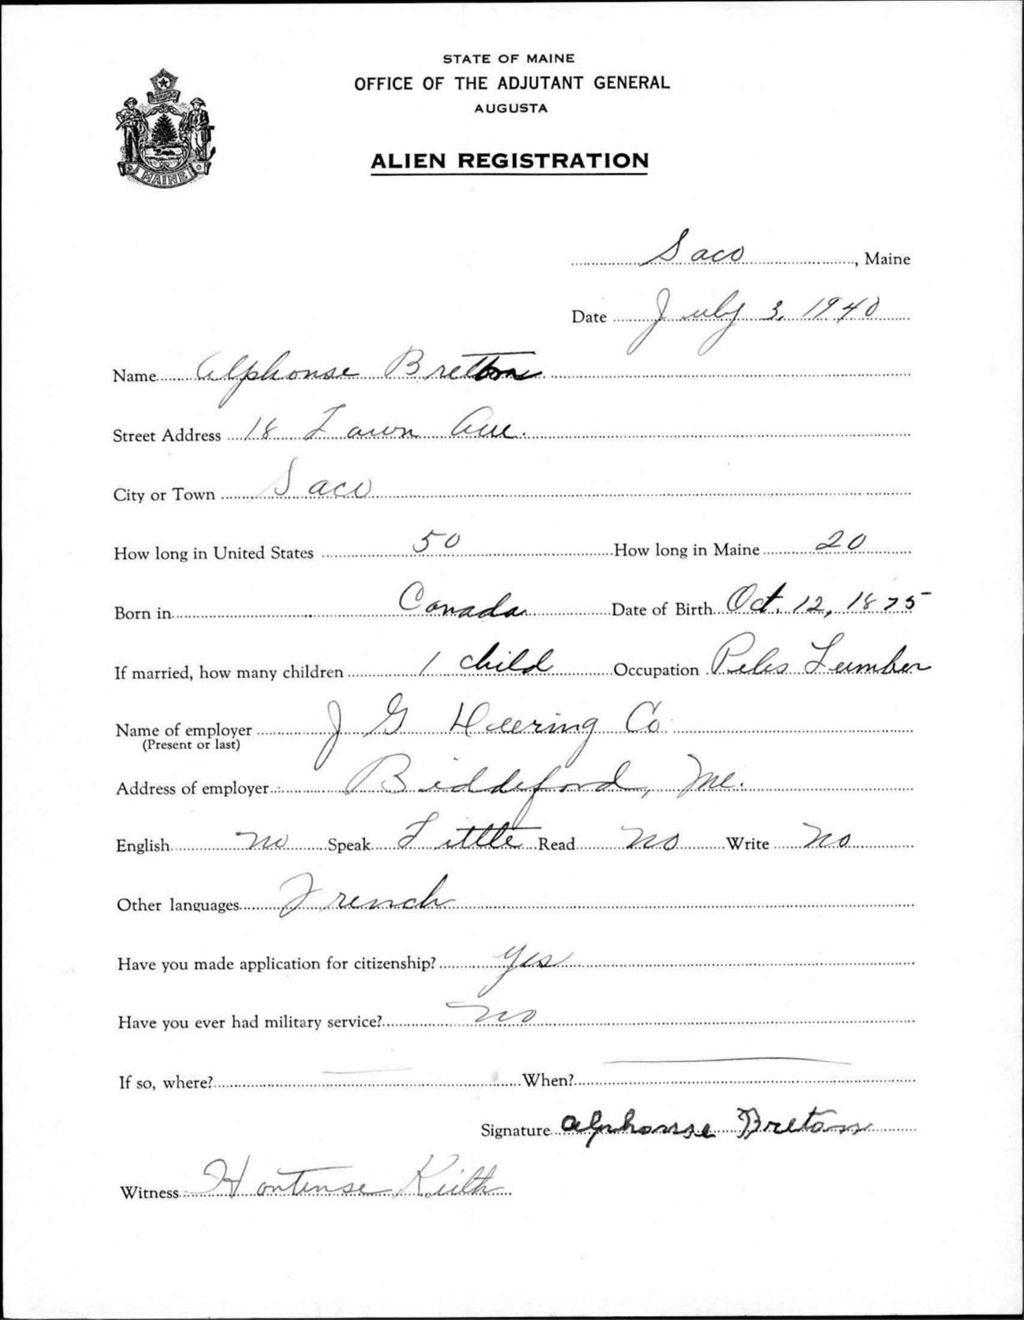 STATE OF MAINE
OFFICE OF THE ADJUTANT GENERAL
AUGUSTA
MAINE
ALIEN REGISTRATION
Saco, Maine
Date July 3, 1940
Name Alphonse Breton
Street Address 18 Lawn Ave.
City or Town Saco
How long in United States 50 How long in Maine 20
Born in Canada Date of Birth Oct. 12, 1875
If married, how many children 1 child Occupation Piles Lumber
Name of employer J G Deering Co.
(Present or last)
Address of employer Biddeford, Me.
English no Speak Little Read no Write no
Other languages French
Have you made application for citizenship? Yes
Have you ever had military service? no
If so, where? — When? —
Signature Alphonse Breton
Witness Hortense Keith